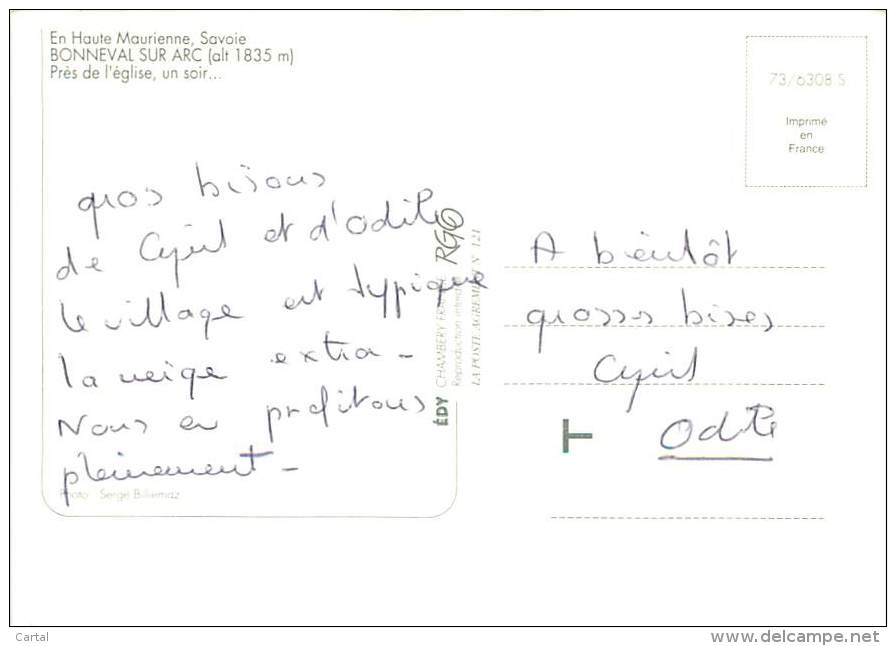 En Haute Maurienne, Savoie
BONNEVAL SUR ARC (alt 1835 m)
Près de l'église, un soir...
73/6308 S
Imprimé
en
France
gros bisous
de Cyril et d'Odile
le village est typique
la neige extra -
Nous en profitons
pleinement -
Photo : Serge Billiemaz
ÉDY CHAMBERY FRANCE
Reproduction interdite
LA POSTE AGREMENT N° 121
RG6
A bientôt
grosses bises
Cyril
Odile
Cartal
www.delcampe.net